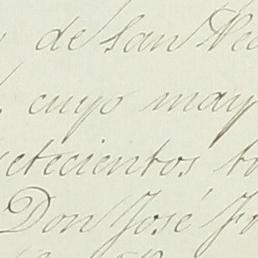 de San
cuyo may
etecientos
Don José